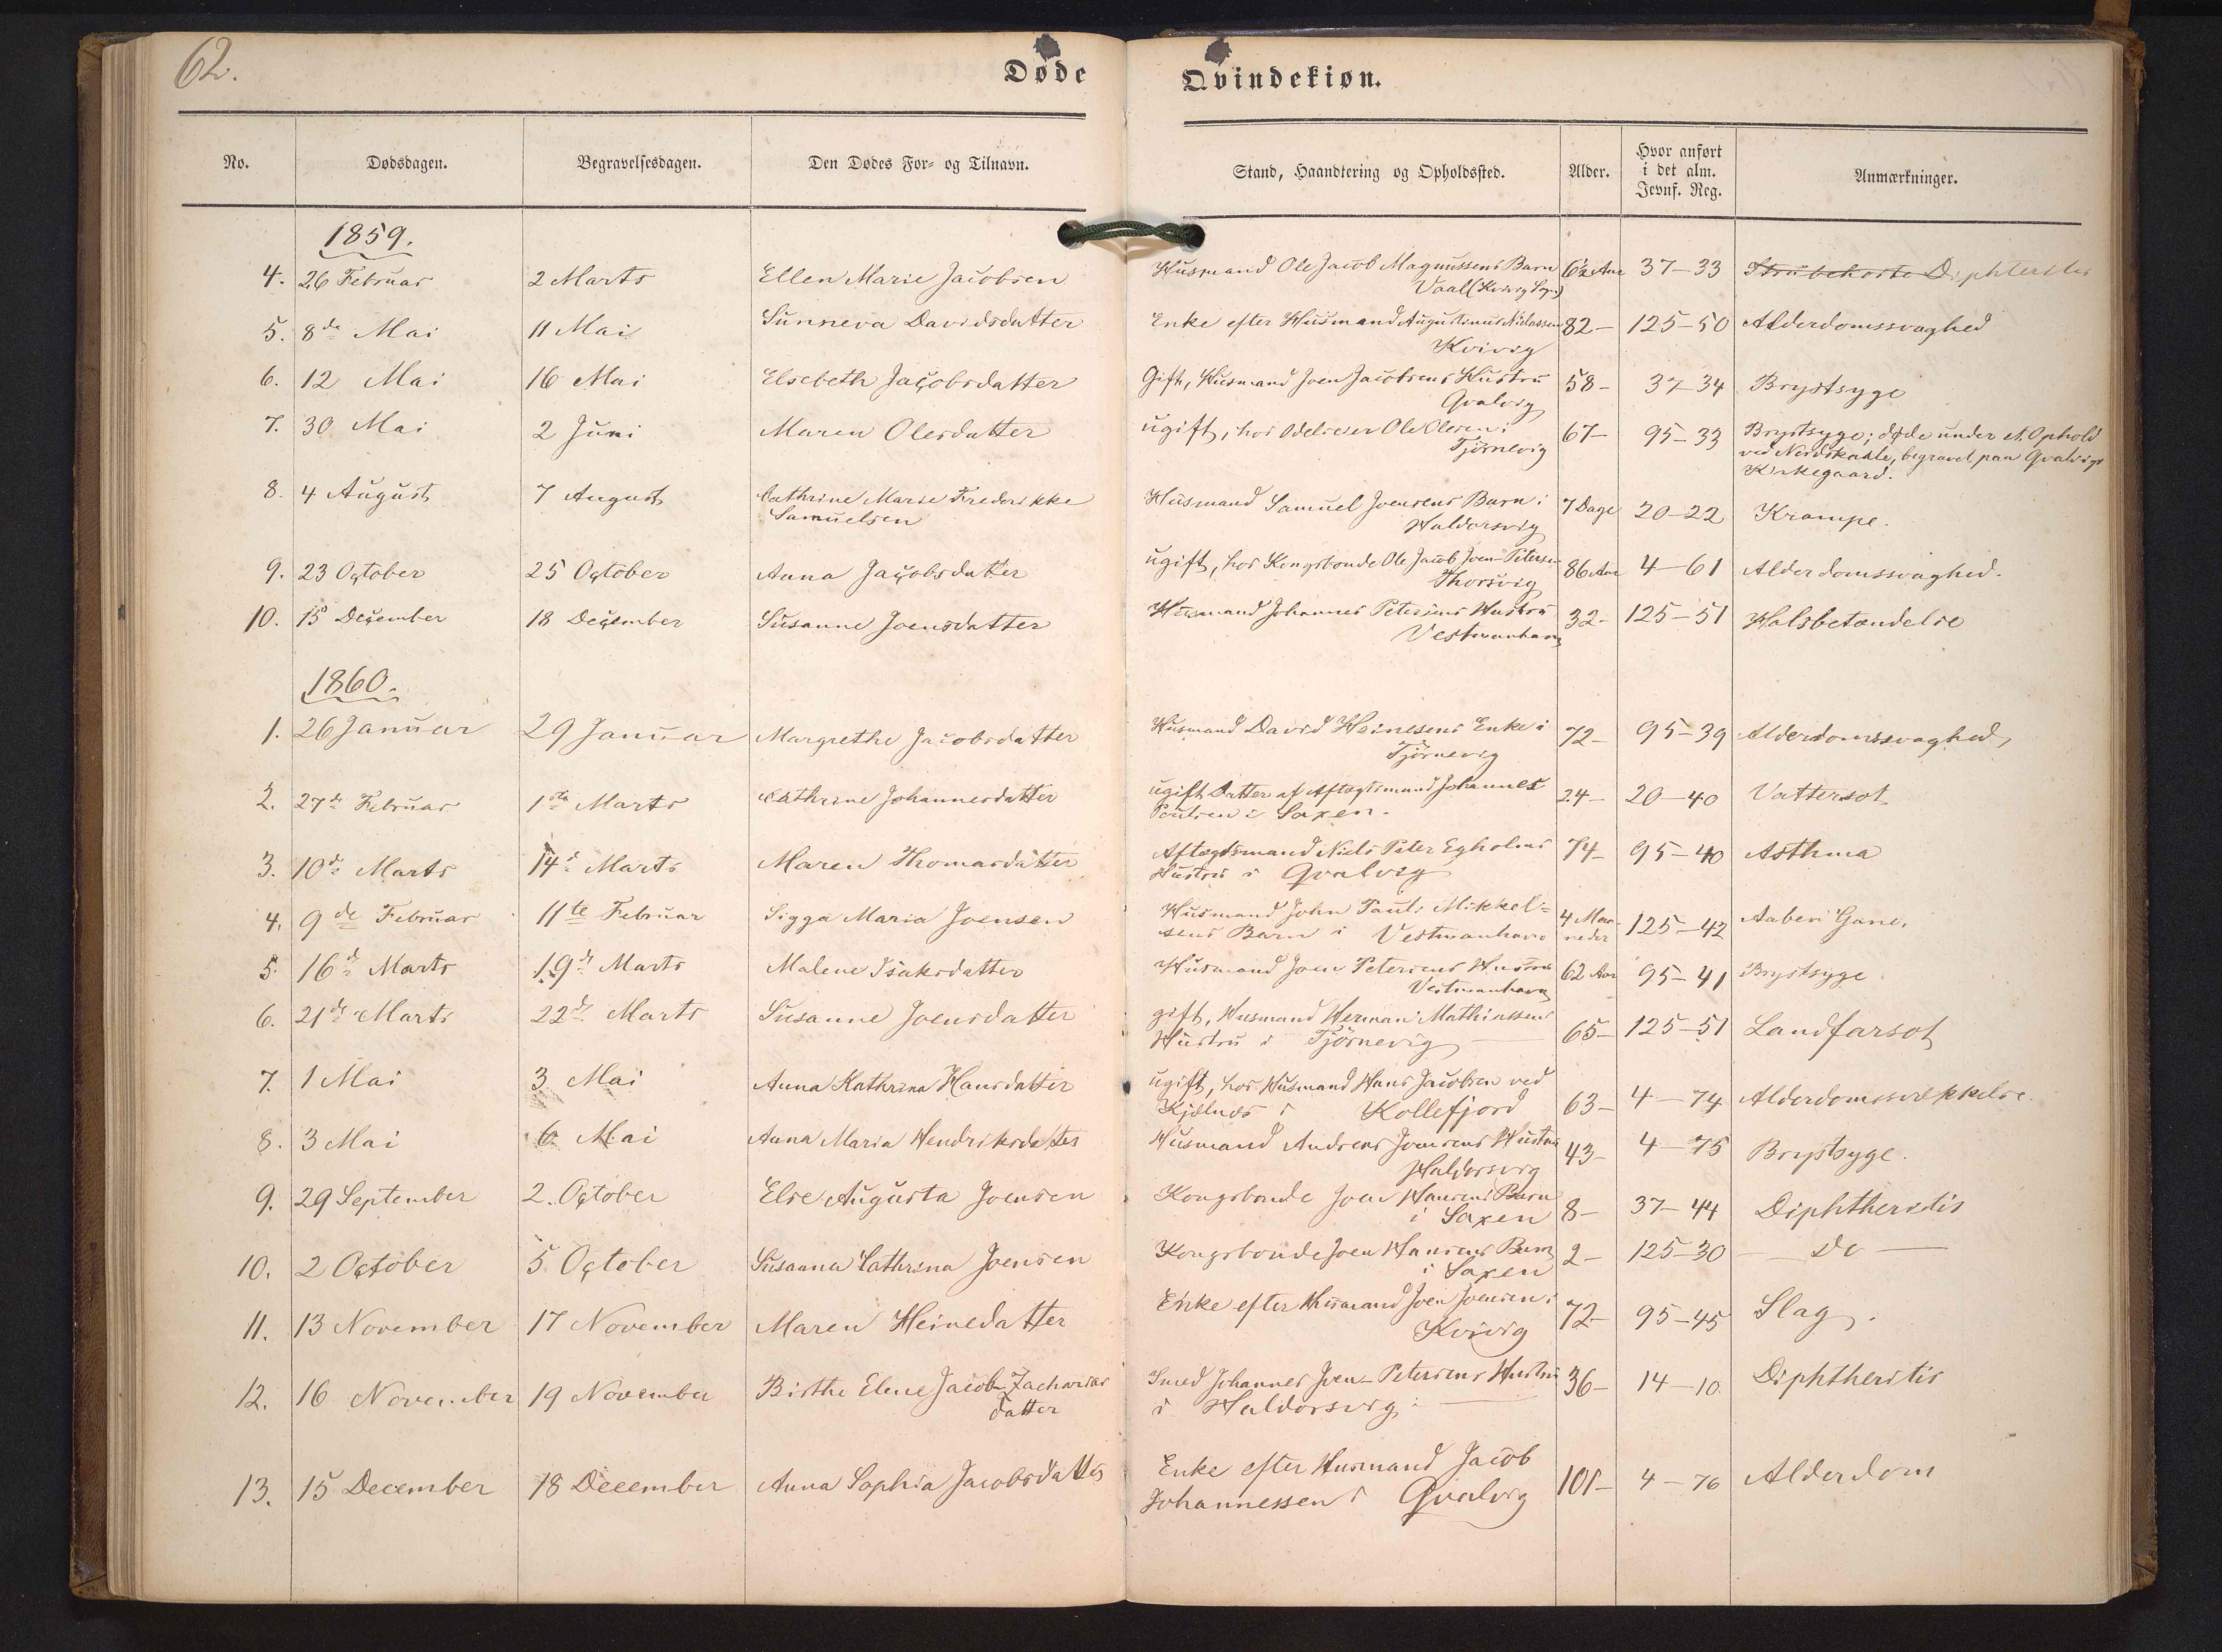 62.
Døde
Qvindekiøn.
No.
Dødsdagen.
Begravelsesdagen.
Den Dødes For- og Tilnavn.
Stand, Haandtering og Opholdssted.
Alder.
Hvor anført
i det alm.
Jevnf. Reg.
Anmærkninger.
1859.
4. 26 Februar 2 Marts Ellen Marie Jacobsen Husmand Ole Jacob Magnussens Barn 6½ Aar 37-33 Strubehoste Diphteritis
Vaal (Kvivig Sogn)
5. 8de Mai 11 Mai Sunneva Davidsdatter Enke efter Husmand Augustinus Niclassen 82- 125-50 Alderdomssvaghed
Kvivig
6. 12 Mai 16 Mai Elsebeth Jacobsdatter Gift, Husmand Joen Jacobsens Hustru 58- 37-34 Brystsyge
Qvalvig
7. 30 Mai 2 Juni Maren Olesdatter ugift, hos Odelseier Ole Olesen i 67- 95-33 Brystsyge; døde under et Ophold
Tjörnevig ved Nordskaale, begravet paa Qvalvigs
Kirkegaard.
8. 4 August 7 August Cathrine Marie Frederikke Husmand Samuel Joensens Barn i 7 Dage 20-22 Krampe.
Samuelsen Haldorsvig
9. 23 October 25 October Anna Jacobsdatter ugift, hos Kongsbonde Ole Jacob Joen-Petersen 86 Aar 4-61 Alderdomssvaghed.
Thorsvig
10. 15 December 18 December Susanne Joensdatter Husmand Johannes Petersens Hustru 32- 125-51 Halsbetændelse
Vestmanhavn
1860.
1. 26 Januar 29 Januar Margrethe Jacobsdatter Husmand David Heinesens Enke i 72- 95-39 Alderdomssvaghed,
Tjörnevig
2. 27de Februar 1ste Marts Cathrine Johannesdatter ugift Datter af Aftægtsmand Johannes 24- 20-40 Vattersot
Poulsen i Saxen.
3. 10de Marts 14de Marts Maren Thomasdatter Aftægtsmand Niels Peter Egholms 74- 95-40 Asthma
Hustru i Qvalvig
4. 9de Februar 11te Februar Sigga Maria Joensen Husmand John Pauli Mikkel= 4 Maa- 125-42 Aaben Gane.
sens Barn i Vestmanhavn neder
5. 16de Marts 19de Marts Malene Isaksdatter Husmand Joen Petersens Hustru 62 Aar 95-41 Brystsyge
Vestmanhavn
6. 21de Marts 22de Marts Susanne Joensdatter gift, Husmand Herman Mathiassens 65- 125-51 Landfarsot
Hustru i Tjörnevig
7. 1 Mai 3 Mai Anna Kathrina Hansdatter ugift, hos Husmand Hans Jacobsen ved 63- 4-74 Alderdomssvækkelse.
Kjælnæs i Kollefjord
8. 3 Mai 6 Mai Anna Maria Hendriksdatter Husmand Andreas Joensens Hustru 43- 4-75 Brystsyge.
Haldorsvig
9. 29 September 2. October Else Augusta Joensen Kongsbonde Joen Hansens Barn 8- 37-44 Diphtheritis
i Saxen
10. 2 October 5 October Susanna Cathrina Joensen Kongsbonde Joen Hansens Barn 2- 125-30 Do
i Saxen
11. 13 November 17 November Maren Heinedatter Enke efter Husmand Joen Joensen i 72- 95-45 Slag.
Kvivig
12. 16 November 19 November Birthe Elene Jacob-Zacharias Smed Johannes Joen-Petersens Hustru 36- 14-10. Diphtheritis
datter i Haldorsvig.
13. 15 December 18 December Anna Sophia Jacobsdatter Enke efter Husmand Jacob 101- 4-76 Alderdom
Johannessen i Qvalvig